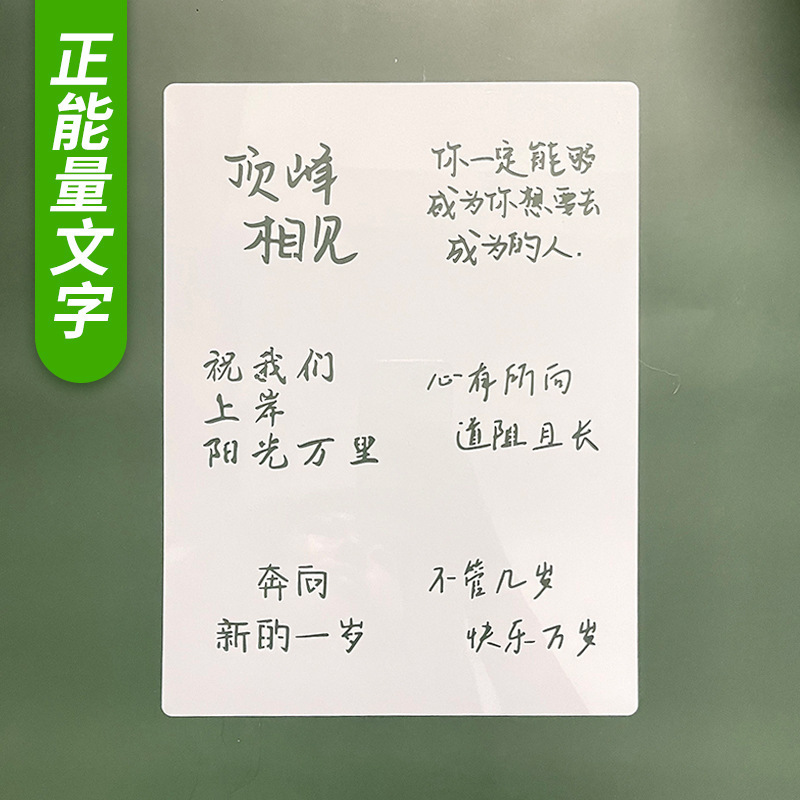 正能量文字
顶峰
相见
你一定能够
成为你想要去
成为的人.
祝我们
上岸
阳光万里
心有所向
道阻且长
奔向
新的一岁
不管几岁
快乐万岁